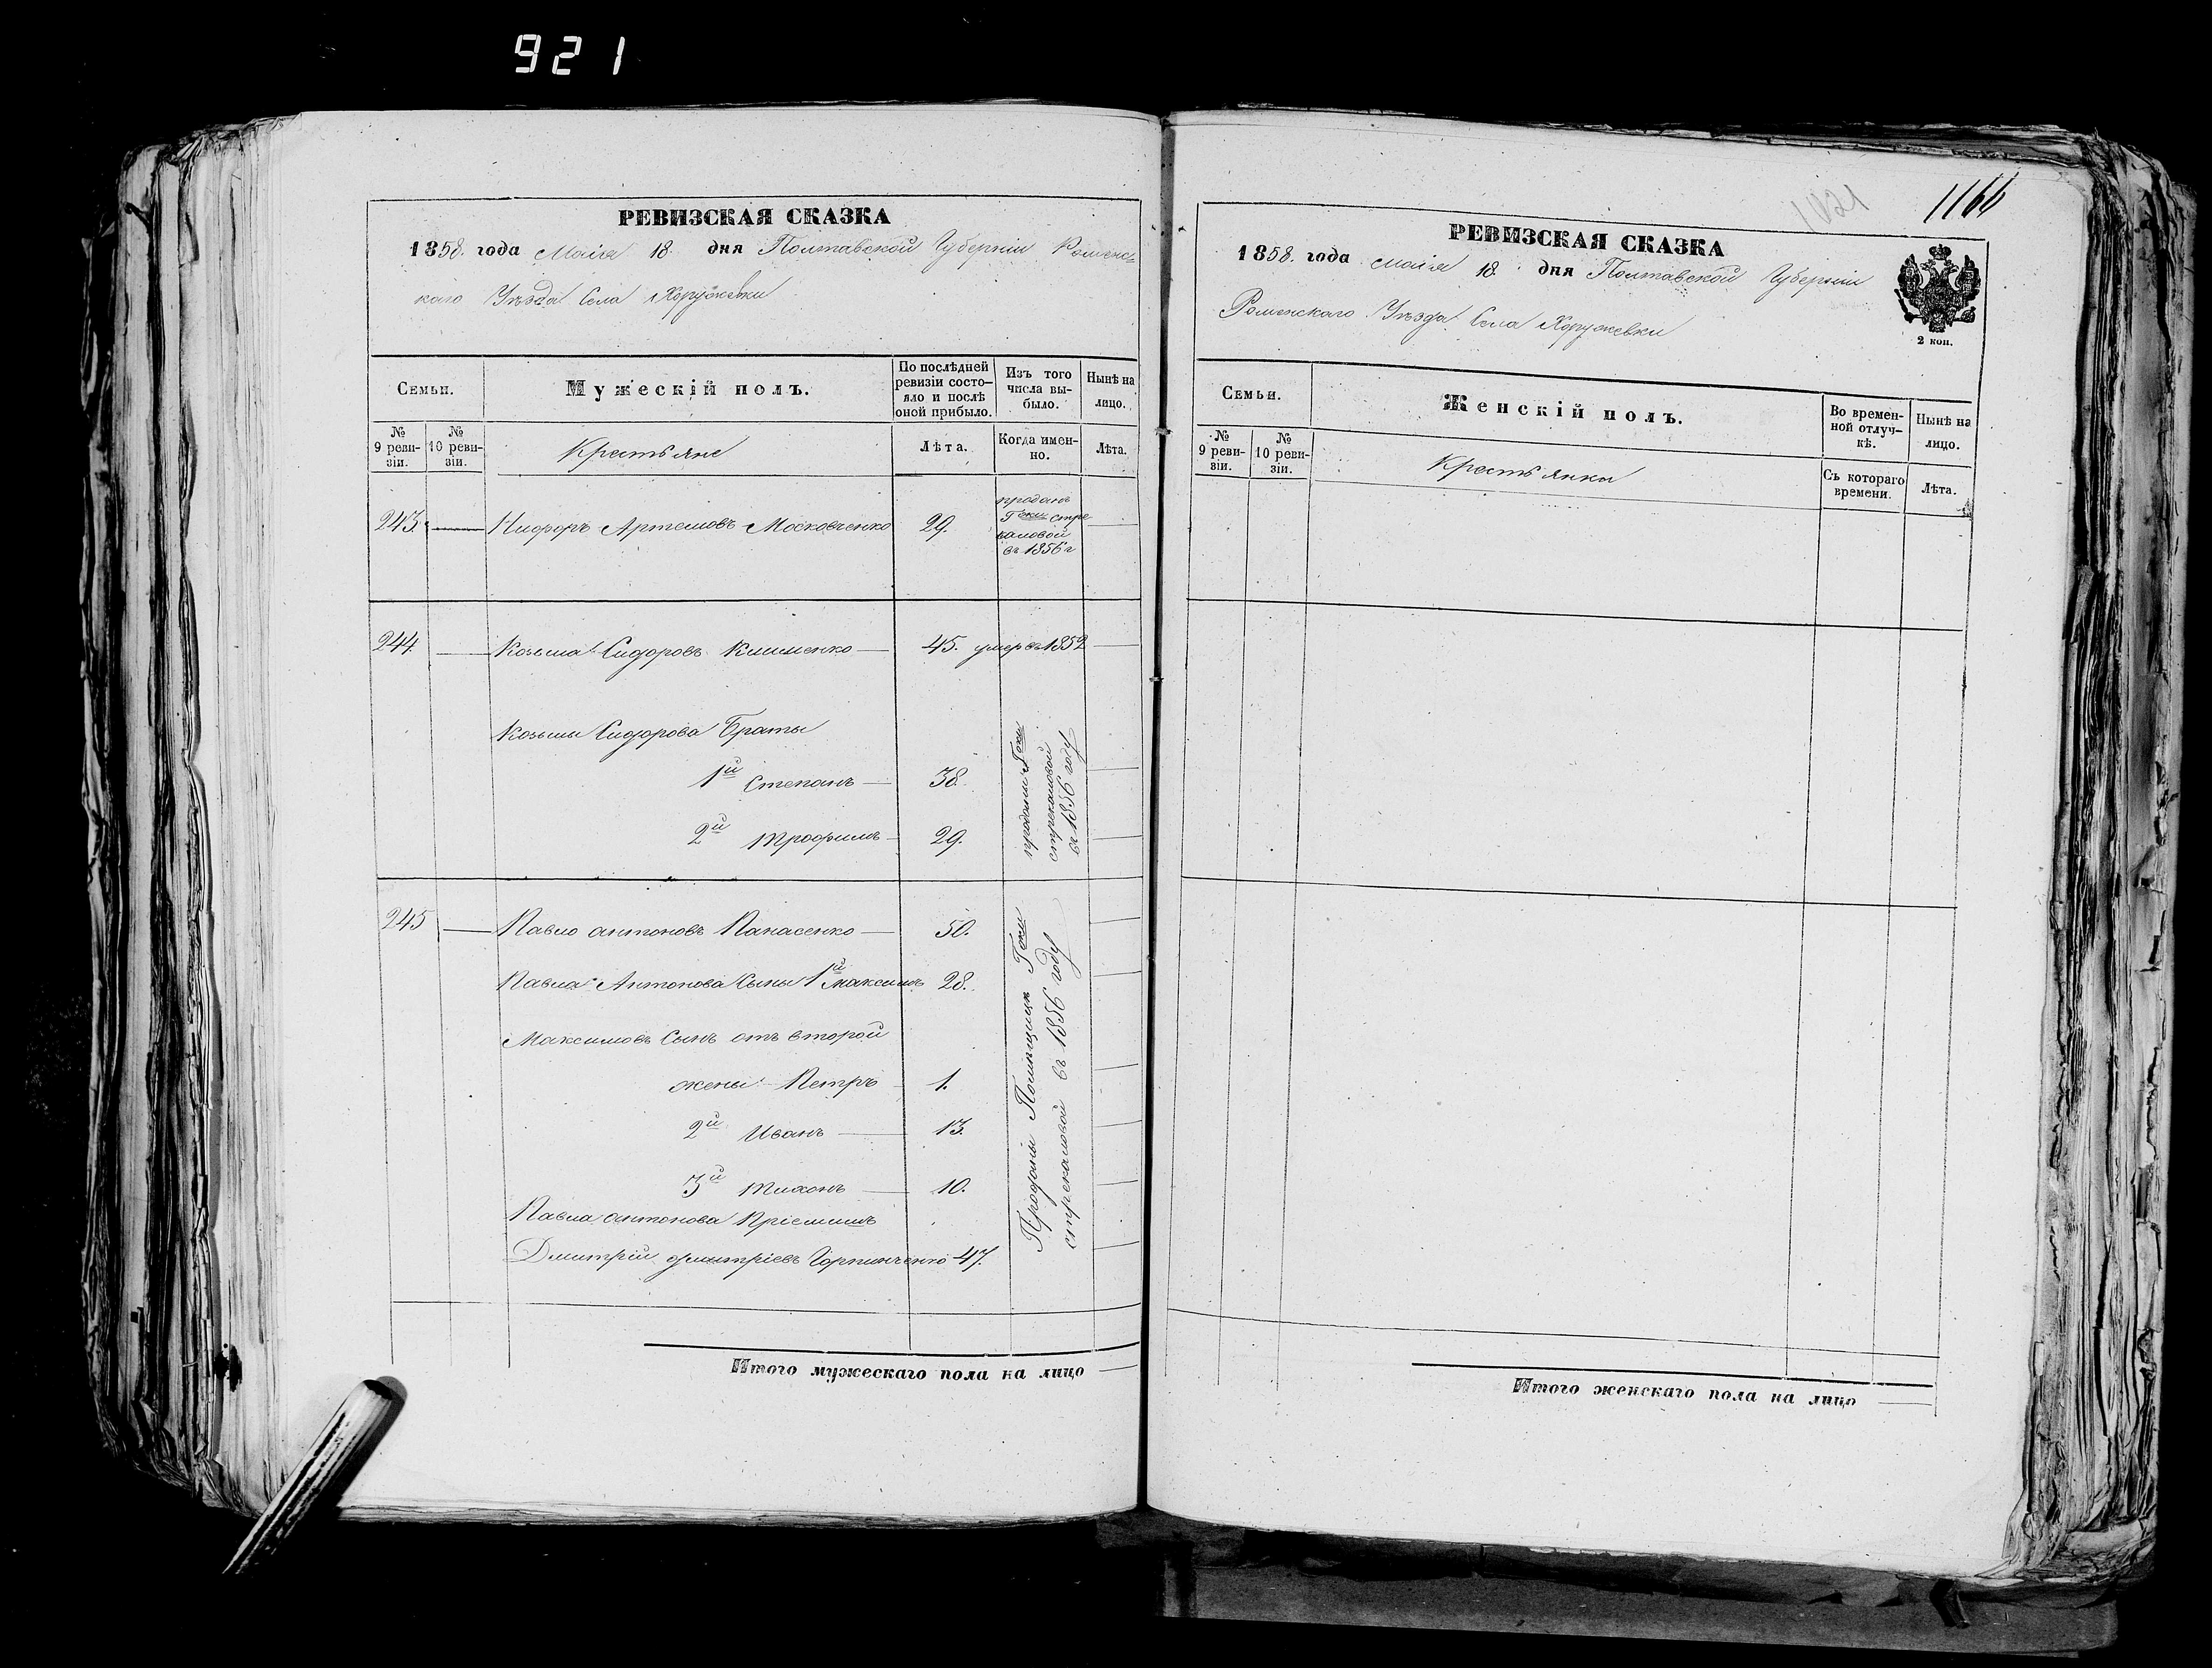 921
РЕВИЗСКАЯ СКАЗКА
1858. года Маія 18. дня Полтавской Губерніи Роменс-
каго Уѣзда Села Хоружевки
Семьи.
Мужескій полъ.
По послѣдней ревизіи состо-яло и послѣ оной прибыло.
Изъ того числа вы-было.
Нынѣ на лицо.
№ 9 реви-зіи.
№ 10 реви-зіи.
Крестьяне
Лѣта.
Когда имен-но.
Лѣта.
243. Никифоръ Артемовъ Московченко 29.
проданъ
Г оки Стре
каловой
въ 1856 г
244. Козьма Сидоровъ Клименко 45. умеръ 1852
Козьмы Сидорова Браты
1й Степанъ 38.
2й Трофимъ 29.
проданы Г оки
стрекаловой
въ 1856 году
245 Павло антоновъ Панасенко 50.
Павла Антонова Сыны 1й Максимъ 28.
Максимовъ Сынъ отъ второй
жены Петръ 1.
2й Иванъ 13.
3й Тихонъ 10.
Павла антонова Пріемышъ
Дмитрій дмитріевъ Горпинченко 47.
Проданы Помѣщицѣ Г оки
стрекаловой въ 1856 году
Итого мужескаго пола на лицо
1021
1166
РЕВИЗСКАЯ СКАЗКА
1858. года маія 18. дня Полтавской Губерніи
Роменскаго Уѣзда Села Хоружевки
2 коп.
Семьи.
Женскій полъ.
Во времен-ной отлуч-кѣ.
Нынѣ на лицо.
№ 9 реви-зіи.
№ 10 реви-зіи.
Крестьянки
Съ котораго времени.
Лѣта.
Итого женскаго пола на лицо